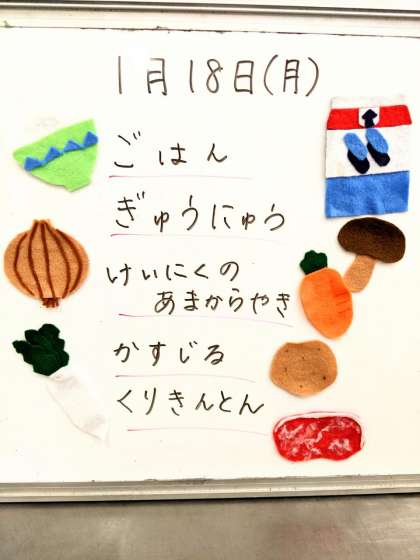 1月18日(月)
ごはん
ぎゅうにゅう
けいにくの
あまからやき
かすじる
くりきんとん